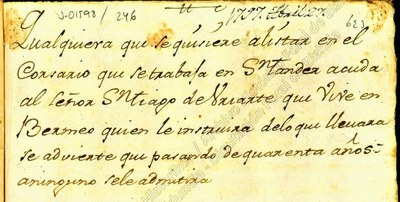 J-01598 / 246
1797. Abril 27.
623
Qualquiera que se quisiere alistar en el
Corsario que se trabaja en Sntander acuda
al Señor Sntiago de Uriarte que Vive en
Bermeo quien le instruira delo que llevara
se adviente que pasando de quarenta años
aninguno sele admitira